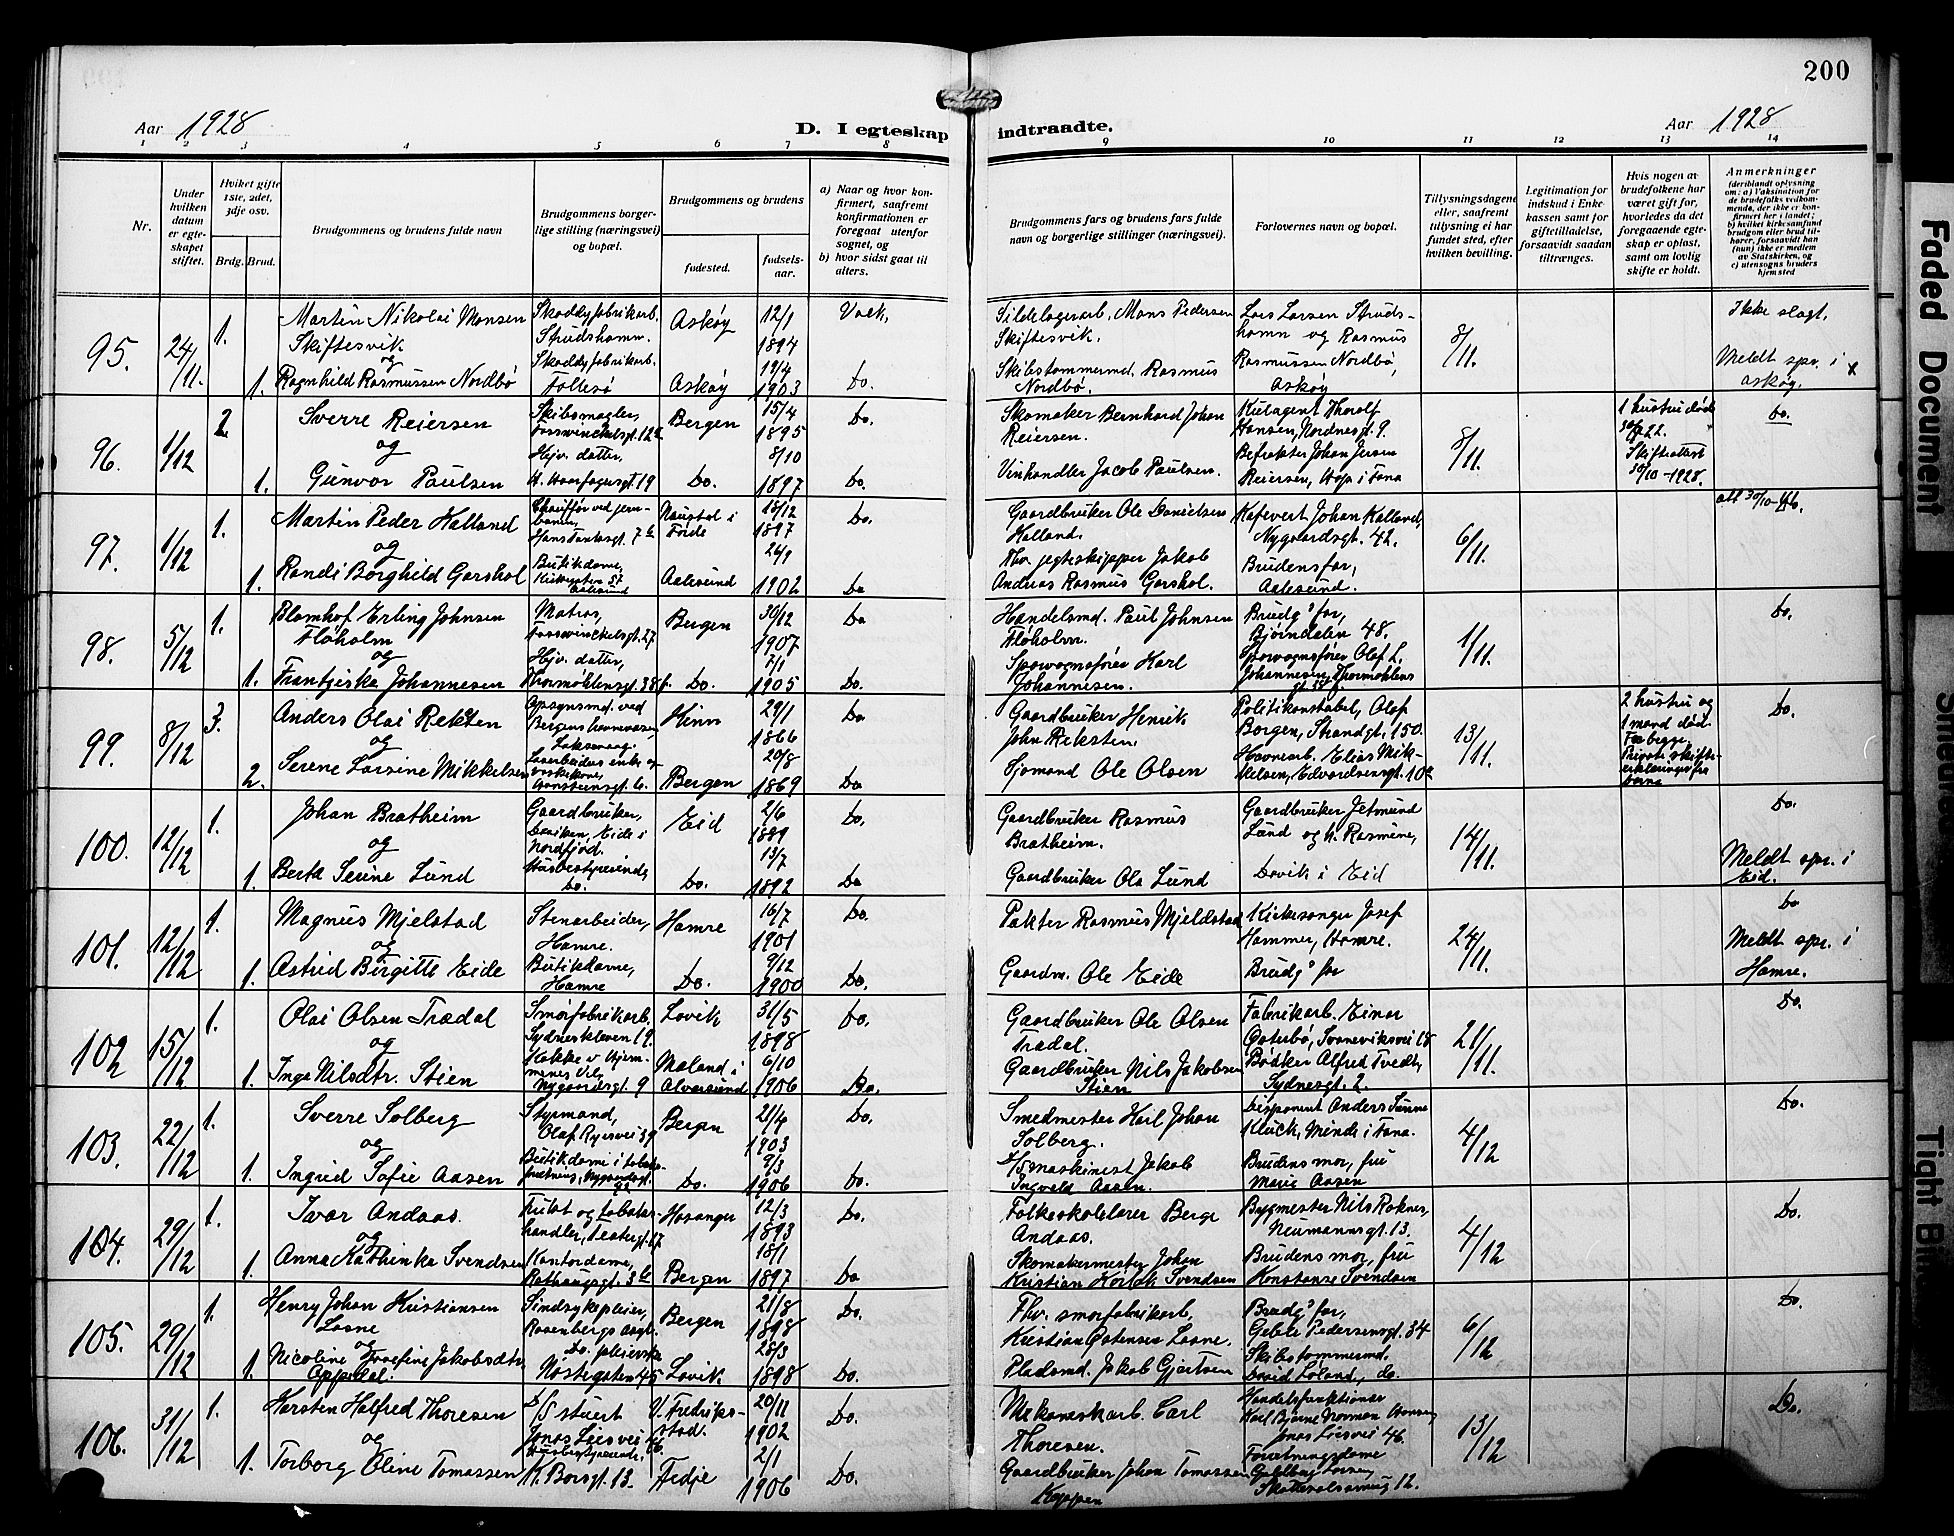 200
Aar 1928
D. I egteskap indtraadte.
Aar 1928
1 2 3 4 5 6 7 8 9 10 11 12 13 14
Nr.
Under hvilken datum er egteskapet stiftet.
Hvilket gifte 1ste, 2det, 3dje osv.
Brdg. Brud.
Brudgommens og brudens fulde navn
Brudgommens borgerlige stilling (næringsvei) og bopæl.
Brudgommens og brudens
fødested.
fødselsaar.
a) Naar og hvor konfirmert, saafremt konfirmationen er foregaat utenfor sognet, og
b) hvor sidst gaat til alters.
Brudgommens fars og brudens fars fulde navn og borgerlige stillinger (næringsvei).
Forlovernes navn og bopæl.
Tillysningsdagene eller, saafremt tillysning ei har fundet sted, efter hvilken bevilling.
Legitimation for indskud i Enkekassen samt for giftetilladelse, forsaavidt saadan tiltrænges.
Hvis nogen av brudefolkene har været gift før, hvorledes da det foregaaende egteskap er opløst, samt om lovlig skifte er holdt.
Anmerkninger
(deriblandt oplysning om: a) Vaksination for de brudefolks vedkommende, der ikke er konfirmert her i landet; b) hvilket kirkesamfund brudgom eller brud tilhører, forsaavidt han (hun) ikke er medlem av Statskirken, og c) utensogns bruders hjemsted
95. 24/11. 1. Martin Nikolai Monsen Skiftesvik Skoddyfabrikarb. Strudshamn. Askøy 12/1 1894 Vaek. Sildelagerarb. Mons Pedersen Skiftesvik. Lars Larsen Strudshamn og Rasmus 8/11. Ikke slagt.
og
1. Ragnhild Rasmussen Nordbø Skoddyfabrikarb. Follesø Askøy 19/4 1903 Do. Skibstømmermd. Rasmus Nordbø Rasmussen Nordbø, Askøy Meldt spr. i Askøy. x
96. 1/12 2. Sverre Reiersen Skibsmægler, Fosswinckelsgt. 12a Bergen 15/4 1895 Do. Skomaker Bernhard Johan Reiersen. Kulagent Thoralf Hansen, Nordnesgt. 9. 8/11. 1 hustru død 22. Skifteattest 30/10-1928. Do.
og
1. Gunvor Paulsen Hjv. datter, H. Haarfagersgt. 19 Do. 8/10 1897 Do. Vinhandler Jacob Paulsen. Befrakter Johan Jersen Reiersen, Hop i Fana
97. 1/12 1. Martin Peder Halland Chauffør ved jernbanen, Hans Tanksgt. 7b Naustdal i Førde 18/12 1897 Do. Gaardbruker Ole Danielsen Halland. Kafevert Johan Kalland, Nygaardsgt. 42. 6/11.
og
1. Randi Borghild Garshol Butikdame, Aalesund Aalesund 26/9 1902 Do Fhv. jegteskipper Jakob Andreas Rasmus Garshol. Brudens far, Aalesund.
98. 5/12 1. Blomhof Erling Johnsen Fløholm Matros, Fosswinckelsgt. 27 Bergen 30/12 1907 Do Handelsmd. Paul Johnsen Fløholm. Brudgs far, Bjørndalen 48. 1/11. Do.
og
1. Frantziska Johannesen Hjv. datter, Thormøhlensgt. 38 f. Do. 7/1 1905 Do. Sporvognsfører Karl Johannesen. Sporvognsfører Olaf L. Johannesen, Thormøhlens gt. 38 f.
99. 8/12 3. Anders Olai Reksten Opsynsmd. ved Bergens havnevæsen, Laksevaag. Hinn 29/1 1866 Do Gaardbruker Henrik John Reksten. Politikonstabel, Olaf Borgen, Strandgt. 150. 13/11. 2 hustru og 1 mand død. For begge, Privat skifteerklæringer fra barna Do.
og
2. Serene Larsine Mikkelsen Bergen 20/8 1869 Do Sjømand Ole Olsen Havnearb. Elias Mikkelsen, Edvardsensgt. 10a
100. 12/12 1. Johan Bratheim Gaardbruker, Eide i Nordfjord. Eid 2/6 1889 Do. Gaardbruker Rasmus Bratheim. Gaardbruker Jetmund Lund og h. Rasmine, 14/11. Do.
og
1. Berte Serine Lund Husbestyrerinde, Do. Do. 13/7 1892 Do Gaardbruker Ola Lund Davik i Eid Meldt spr. i Eid.
101. 12/12 1. Magnus Mjelstad Stenarbeider, Hamre. Hamre 16/7 1901 Do. Pakter Rasmus Mjeldstad Kirkesanger Josef Hammer, Hamre. 24/11. Do
og
1. Astrid Birgitte Eide Butikdame, Hamre Do. 9/12 1900 Do. Gaardm. Ole Eide Brudgs far Meldt spr. i Hamre.
102 15/12 1. Olai Olsen Trædal Smørfabrikarb. Sydneskleven 19. Lavik 31/5 1898 Do. Gaardbruker Ole Olsen Trædal. Fabrikarb. Einar Østerbø, Svaneviksvei 18 21/11. Do.
og
1. Inga Nilsdtr. Stien Nygaardsgt. 9 Maland i Alversund 6/10 1906 Do. Gaardbruker Nils Jakobsen Stien Bødker Alfred Tvedt, Sydnesgt. 2.
103. 22/12 1. Sverre Solberg Styrmand, Olaf Ryesvei 39 Bergen 21/4 1903 Do. Smedmester Karl Johan Solberg. Disponent Anders Sunne Kluck, Minde i Fana. 4/12 Do.
og
1. Ingrid Sofie Aasen Do. 9/3 1906 Do. D/S maskinist Jakob Ingvald Aasen. Brudens mor, fru Marie Aasen
104. 29/12 1. Ivar Andaas. Frukt og tobakshandler, Teatergt. 17 Hosanger 12/3 1893 Do. Folkeskolelærer Berge Andaas. Bygmester Nils Roknes, Neumannsgt. 13. 4/12 Do.
og
1. Anna Kathinka Svendsen Kontordame, Bergen 18/1 1897 Do Skomakermester Johan Kristian Svendsen Brudens mor, fru Konstanse Svendsen
105. 29/12 1. Henry Johan Kristiansen Losne Sindsykepleier, Rosenbergs asyl. Bergen 21/8 1898 Do. Fhv. smørfabrikarb. Kristian Ostensen Losne. Brudgs far, Geble Pedersensgt. 34 6/12 Do.
og
1. Nicoline Josefine Jakobsdtr. Oppedal. Do. pleierske Nøstegaten 45 Lavik 28/3 1898 Do. Pladsmd. Jakob Gjertsen Skibstømmermd. David Løland, do.
106. 31/12 1. Karsten Halfred Thoresen D/S stuert Jonas Liesvei 46. V. Fredrikstad. 20/11 1902 Do. Mek. verkst.arb. Carl Thoresen. Handelsfunktionær Karl Bjarne Norman Hansen, Jonas Liesvei 46. 13/12 Do.
og
1. Torborg Oline Tomassen K. Borsgt. 13. Fedje 2/1 1906 Do. Gaardbruker Johan Tomassen Koppen Forretningsdame Skottevalsmug 12.
Faded Document
Tight Bin